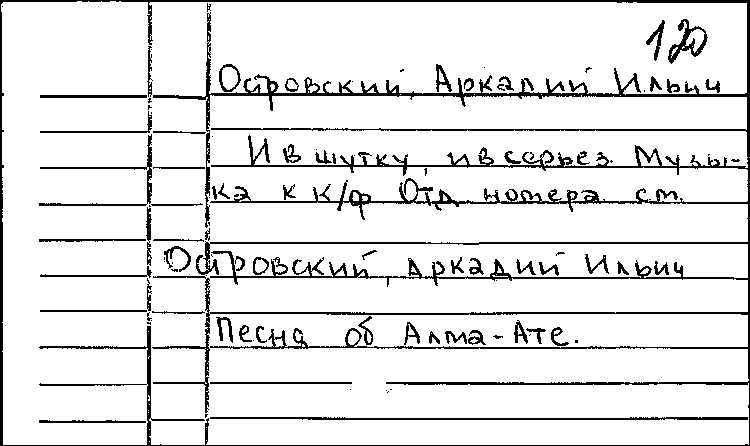 120
Островский, Аркадий Ильич
И в шутку, и в серьез. Музы-
ка к к/ф Отд. номера см.
Островский, Аркадий Ильич
Песня об Алма-Ате.